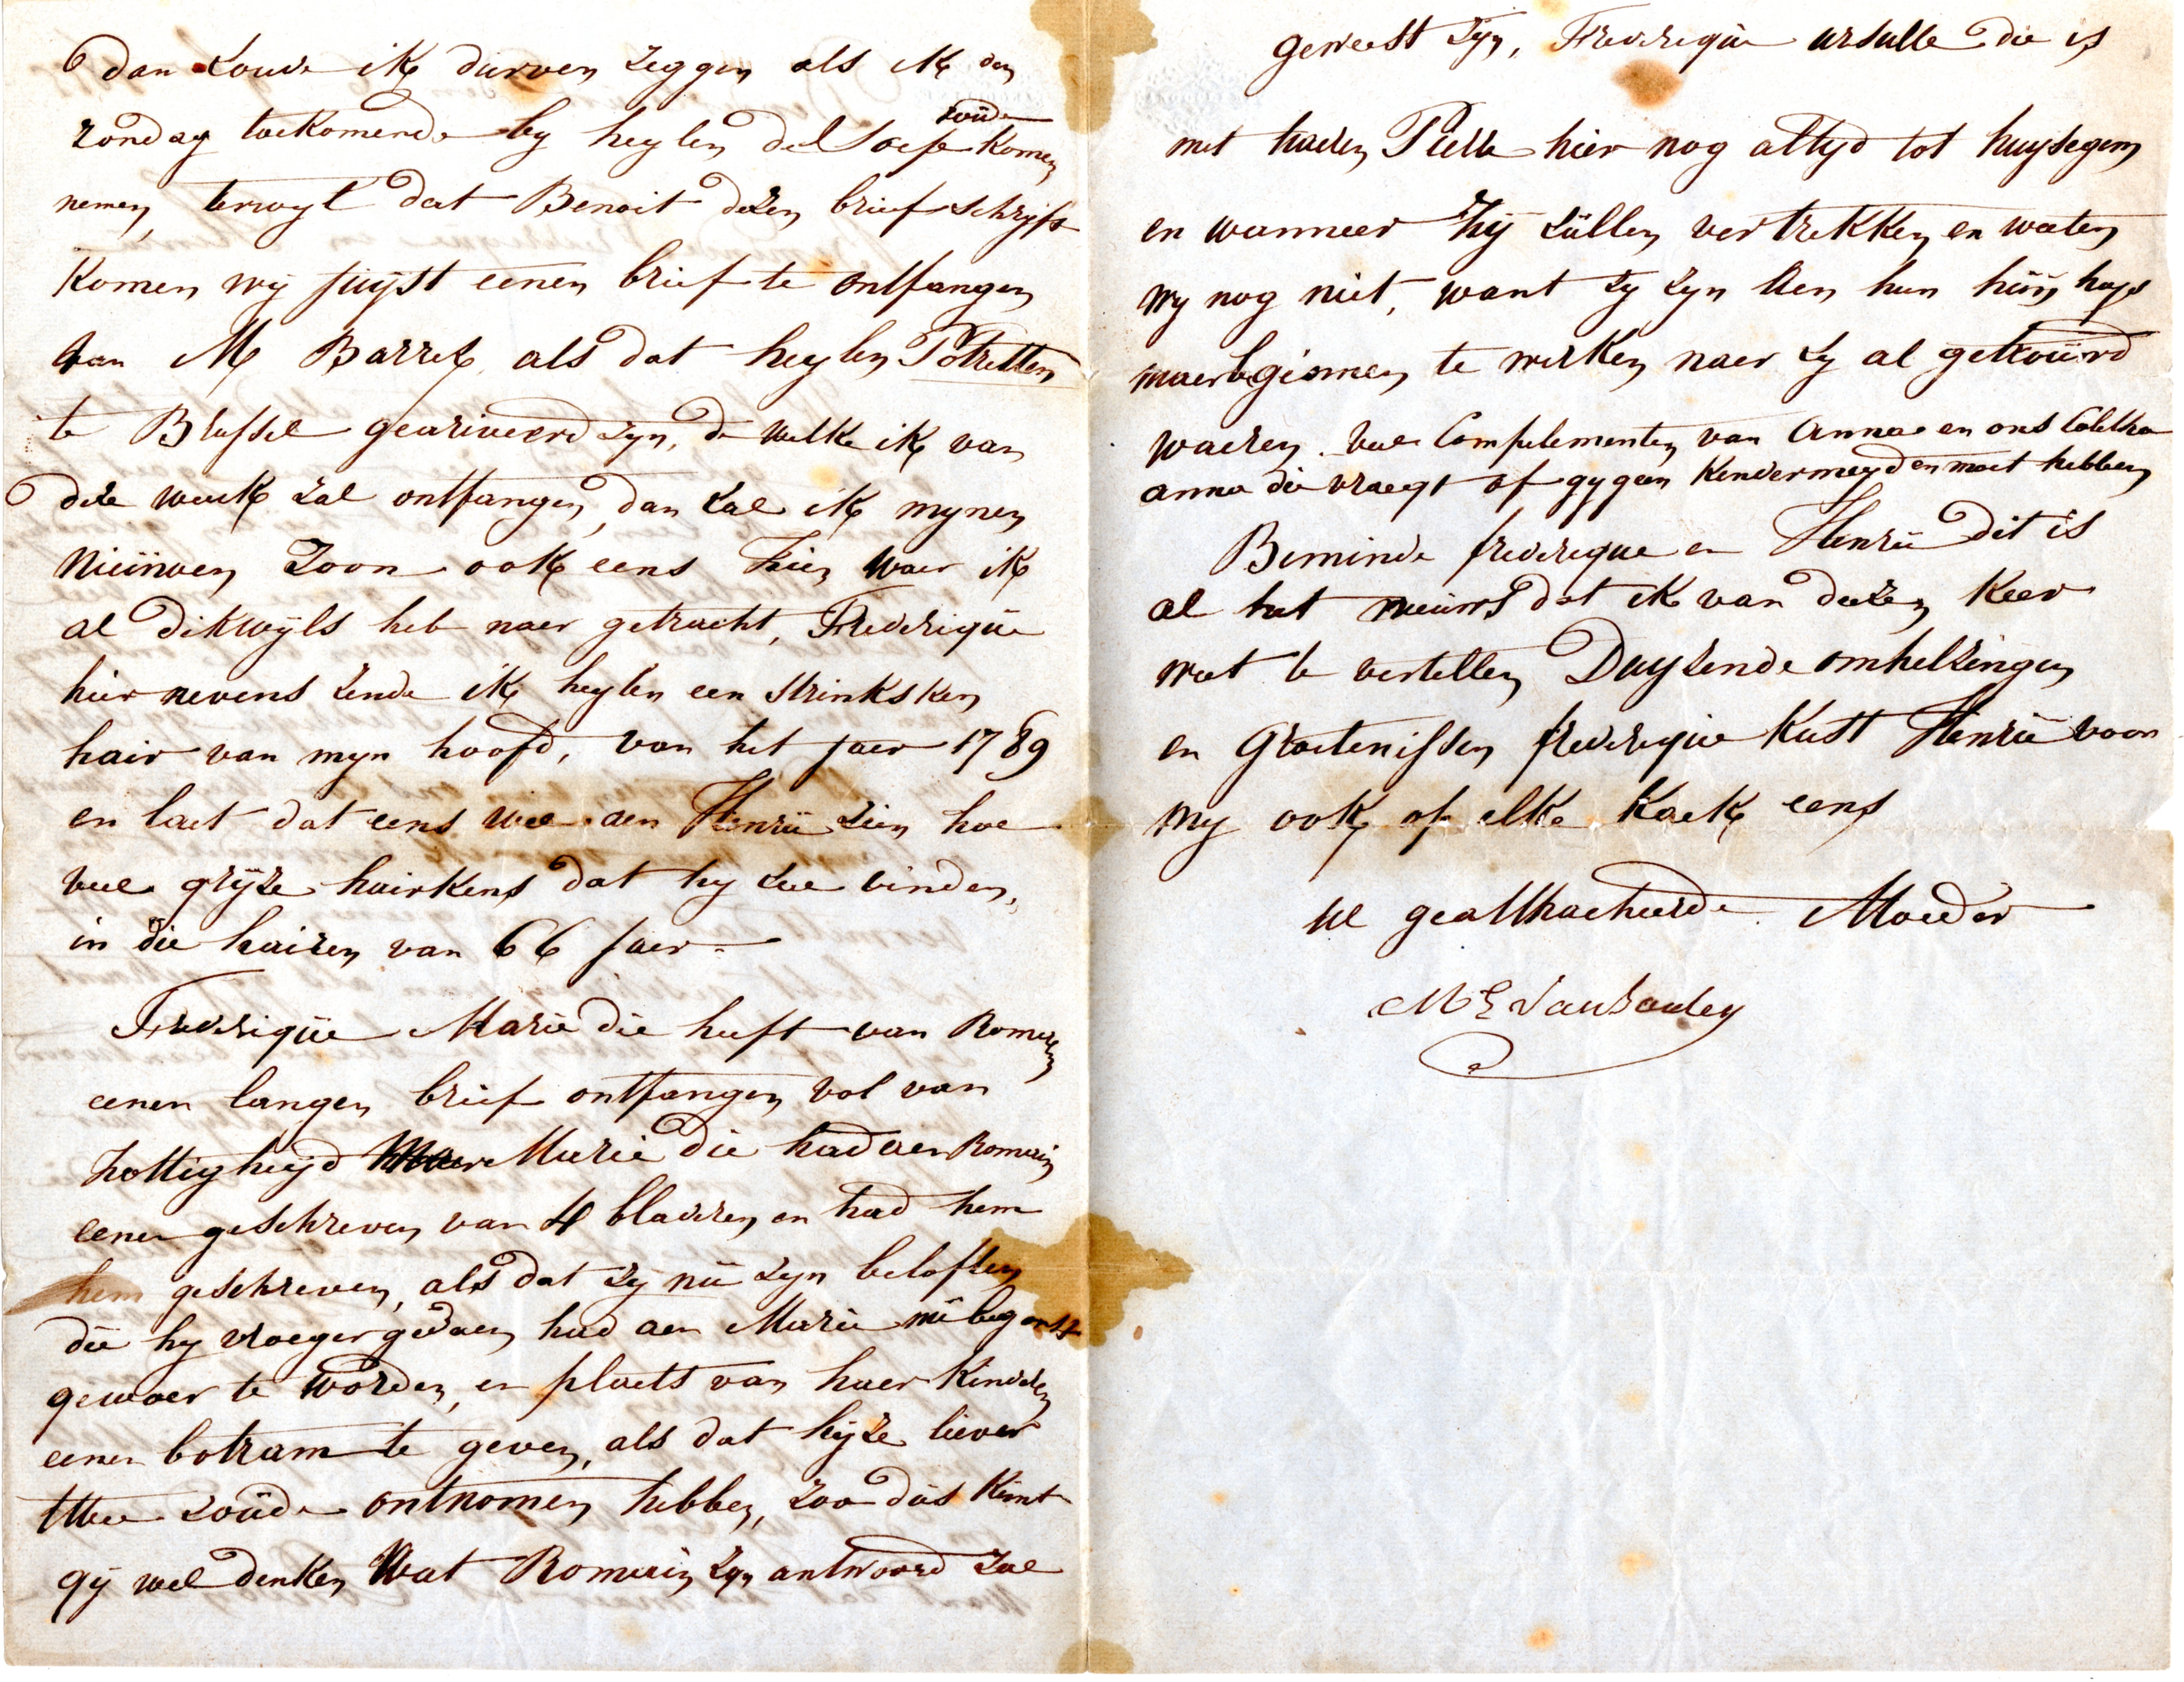 dan zoude ik durven zeggen als ik den
zondag toekomende by heylen del soep zoude komen
nemen, terwyl dat Benoit dezen brief schryft
komen wij juyst eenen brief te ontfangen
van M Barrel als dat heylen Potretten
te Brussel gearriveerd zyn, de welke ik van
deze week zal ontfangen, dan zal ik mynen
nieuwen zoon ook eens zien waer ik
al dikwyls heb naer getracht, Frederique
hier nevens zende ik heylen een strinksken
hair van myn hoofd, van het jaer 1789
en laet dat eens wel aen Henrie zien hoe
veel gryze hairkens dat hy zal vinden,
in die hairen van 66 jaer
Frederique Marie die heeft van Romain
eenen langen brief ontfangen vol van
zottigheyd Marie die had aen Romain
eenen geschreven van 4 bladeren en had hem
hem geschreven, als dat zy nu zyn beloften
die hy vroeger gedaen had aen Marie nu begonst
gewaer te worden, in plaets van haer kinderen
eenen botram te geven, als dat hyze liever
twee zoude ontnomen hebben, zoo dus kont
gij wel denken wat Romain zyn antwoord zal
geweest zyn, Frederique ursulle die is
met haeren Pierre hier nog altyd tot huysegem
en wanneer zij zullen vertrekken en weeten
wy nog niet, want zy zyn aen hun huys
maer begonnen te werken naer zy al getrouwd
waeren veel Complementen van Anna en ons Coletha
anna die vraegt of gy geen kindermeyd en moet hebben
Beminde frederique en Henrie dit is
al het nieuws dat ik van dezen keer
weet te vertellen Duyzende omhelzingen
en Groetenissen frederique kust Henrie voor
my ook op elke kaek eens
UE geattacheerde Moeder